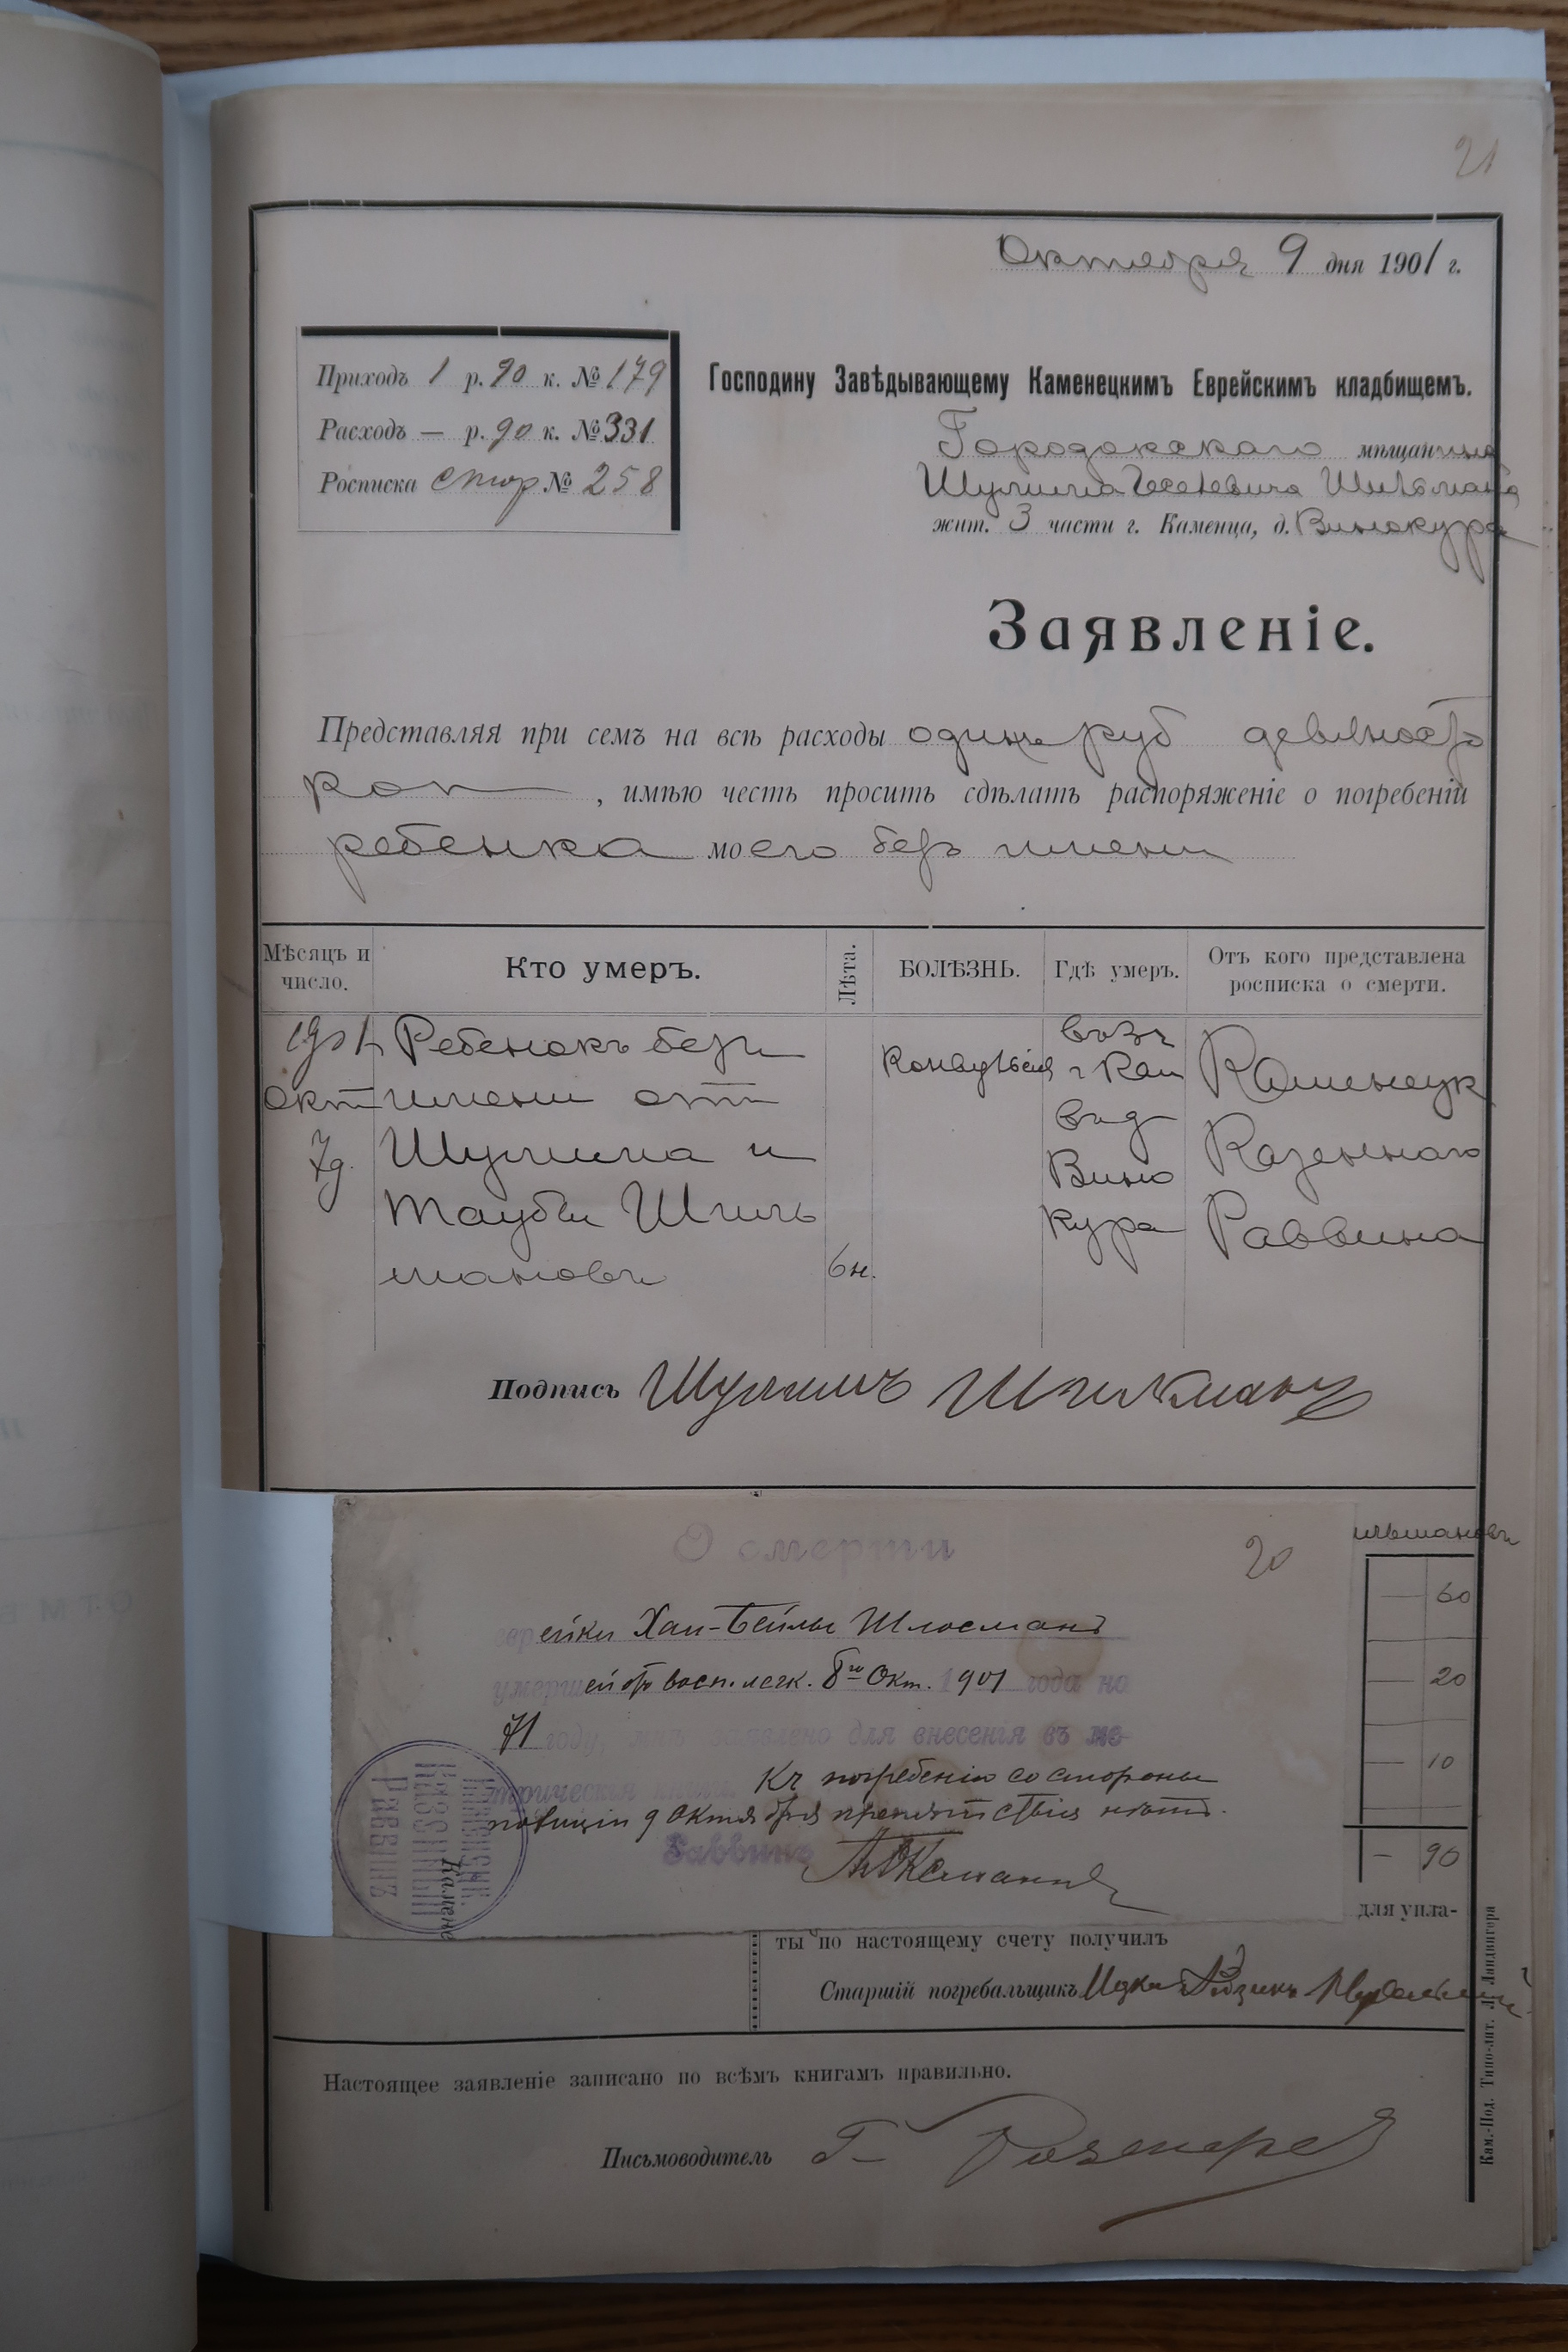 21
Октября 9 дня 1901 г.
Приходъ 1 р. 90 к. № 179
Расходъ — р. 90 к. № 331
Росписка № 258
Господину Завѣдывающему Каменецкимъ Еврейскимъ кладбищемъ.
Городокскаго мѣщанина
Шулима Шильмана
жит. 3 части г. Каменца, д. Винокура
Заявленіе.
Представляя при семъ на всѣ расходы одинъ руб девяносто
коп , имѣю честь просить сдѣлать распоряженіе о погребеніи
ребенка моего безъ имени
Мѣсяцъ и число.
Кто умеръ.
Лѣта.
БОЛѢЗНЬ.
Гдѣ умеръ.
Отъ кого представлена росписка о смерти.
1901 Ребенокъ безъ
окт имени отъ
7д. Шулима и
Таубы Шиль
мановъ 6н.
Конвульсія
г Кам
въ д
Вино
кура
Каменецк
Казеннаго
Раввина
Подпись Шулимъ Шильманъ
О смерти 20
еврейки Хаи-Бейлы Шлосманъ
умершей отъ восп. легк. 8го Окт. 1901 года на
71 году, мнѣ заявлено для внесенія въ ме-
трическія книги. Къ погребенію со стороны
полиціи 9 Октября препятствія нѣтъ.
Раввинъ
Казенный
Раввинъ
Камене
ильмановъ
— 60
— 20
— 10
— 90
для упла-
ты по настоящему счету получилъ
Старшій погребальщикъ Ицко
Настоящее заявленіе записано по всѣмъ книгамъ правильно.
Письмоводитель Г
Кам.-Под. Типо-лит. Л. Ландвигера